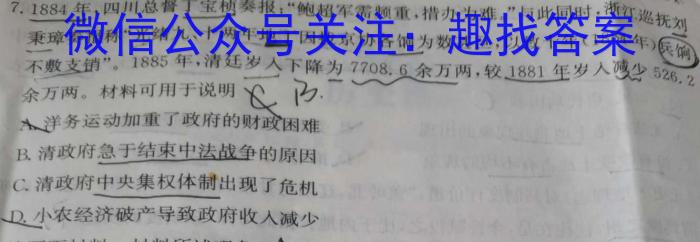 7. 1884年，四川总督丁宝桢奏报："鲍超军需频重，措办为难。"与此同时，浙江巡抚刘
秉璋
微信公众号关注：趣找答案
兵饷
不敷支销"。1885年，清廷岁入下降为7708.6余万两，较1881年岁入减少526.2
余万两。材料可用于说明
C B.
A. 洋务运动加重了政府的财政困难
B. 清政府急于结束中法战争的原因
C. 清政府中央集权体制出现了危机
D. 小农经济破产导致政府收入减少